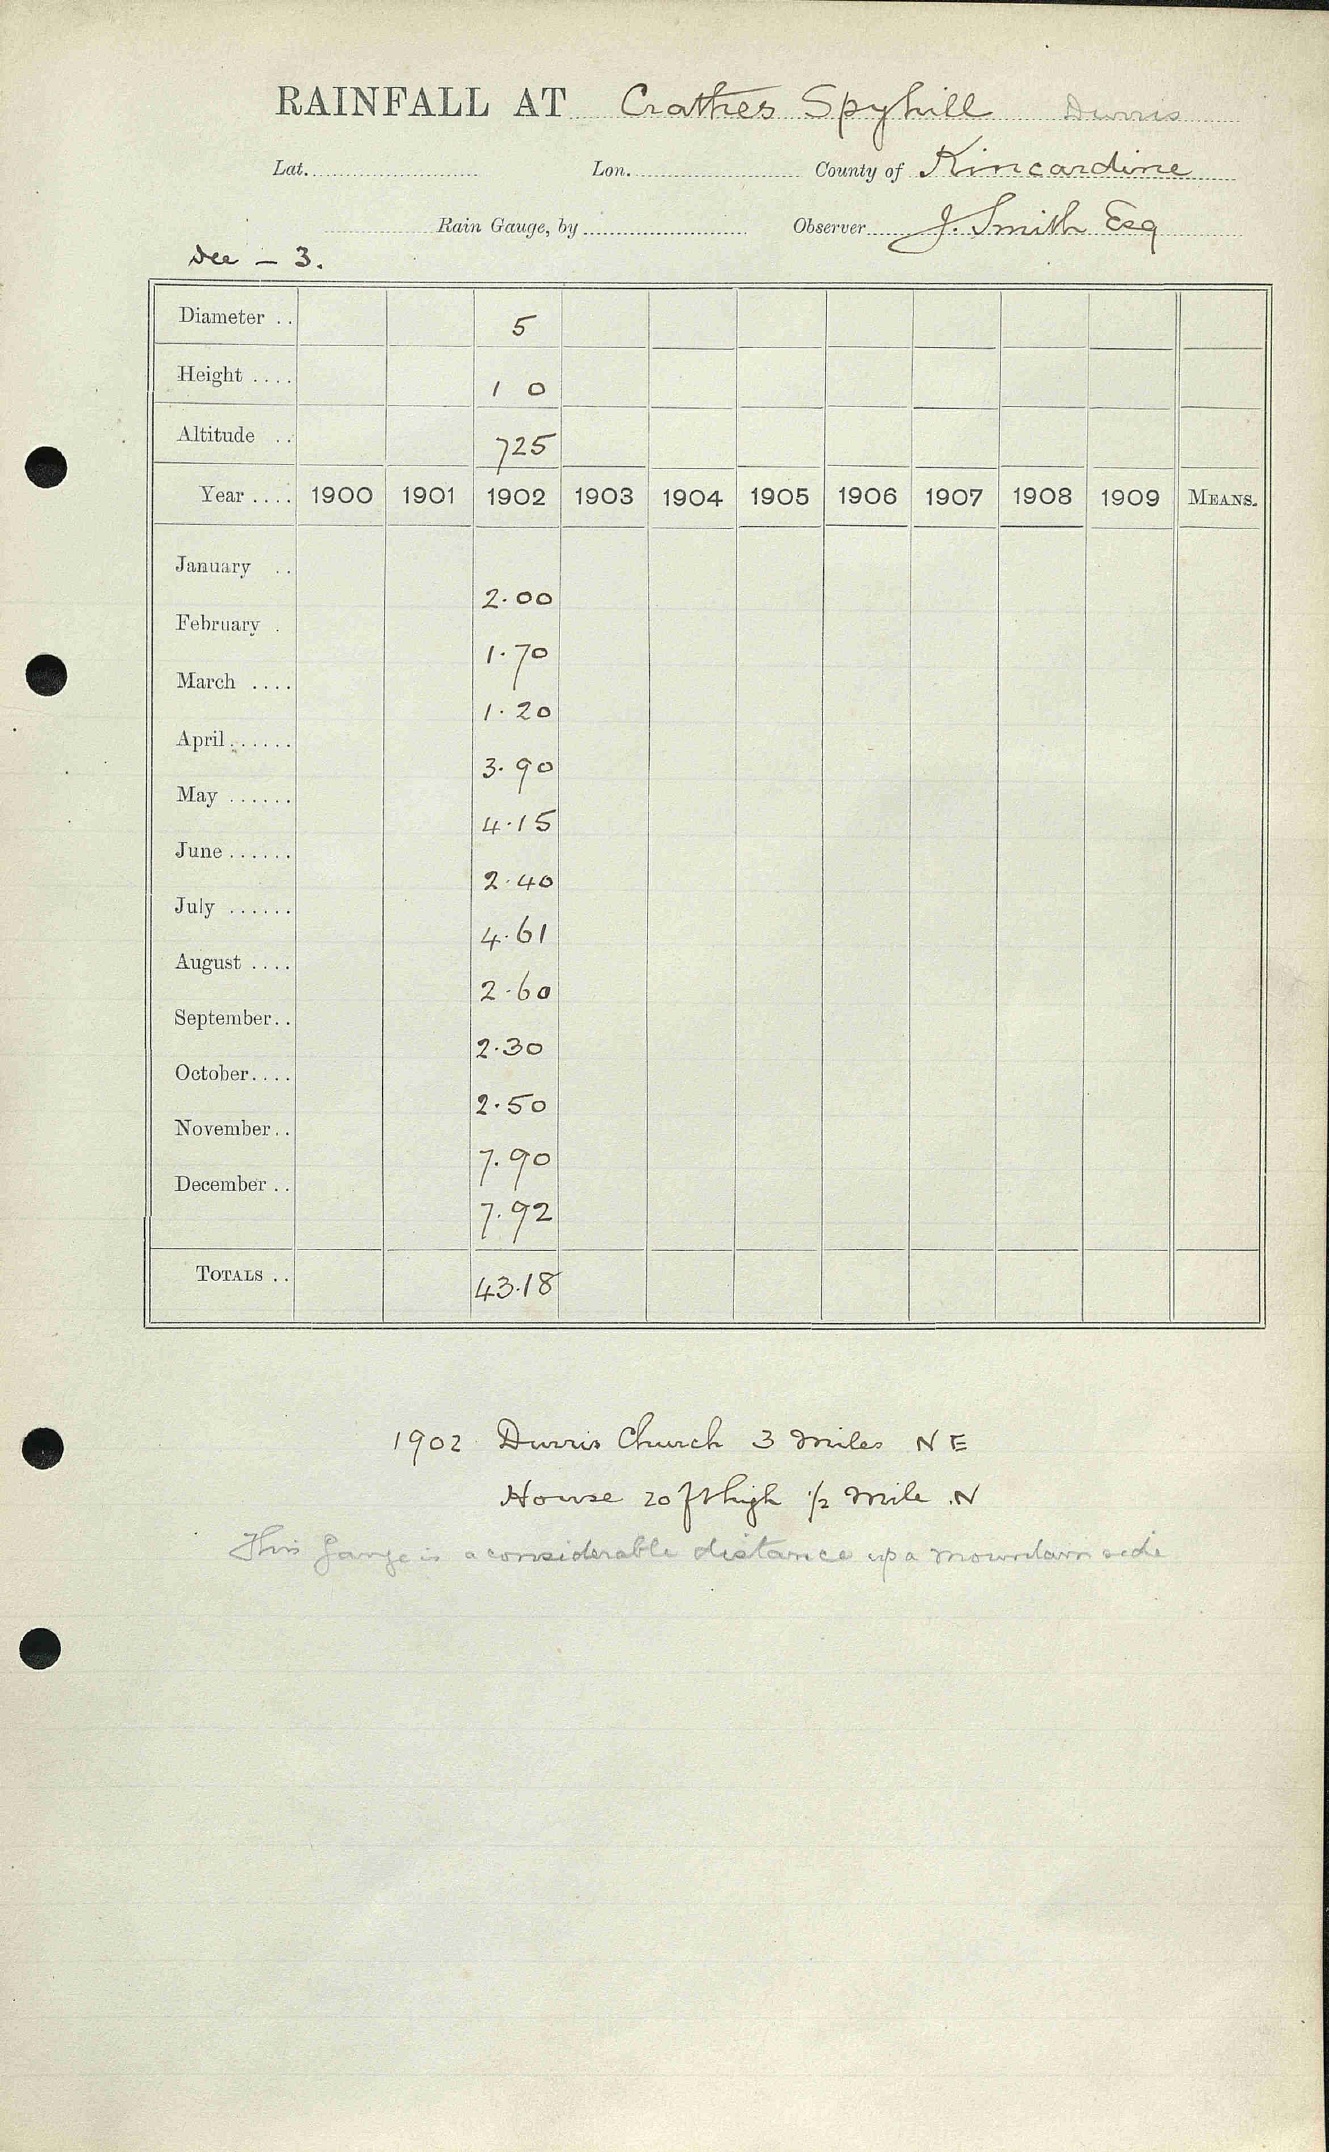 RAINFALL AT Crathes Spyhill Durris
Lat. Lon. County of Kincardine
Rain Gauge, by Observer J. Smith Esq
Dee – 3.
Diameter .. 5
Height .... 1 0
Altitude .. 725
Year .... 1900 1901 1902 1903 1904 1905 1906 1907 1908 1909 MEANS.
January .. 2.00
February . 1.70
March .... 1.20
April ...... 3.90
May ...... 4.15
June ...... 2.40
July ...... 4.61
August .... 2.60
September.. 2.30
October.... 2.50
November.. 7.90
December .. 7.92
TOTALS .. 43.18
1902 Durris Church 3 miles NE
House 20 ft high 1/2 mile N
This Gauge is a considerable distance up a mountain side